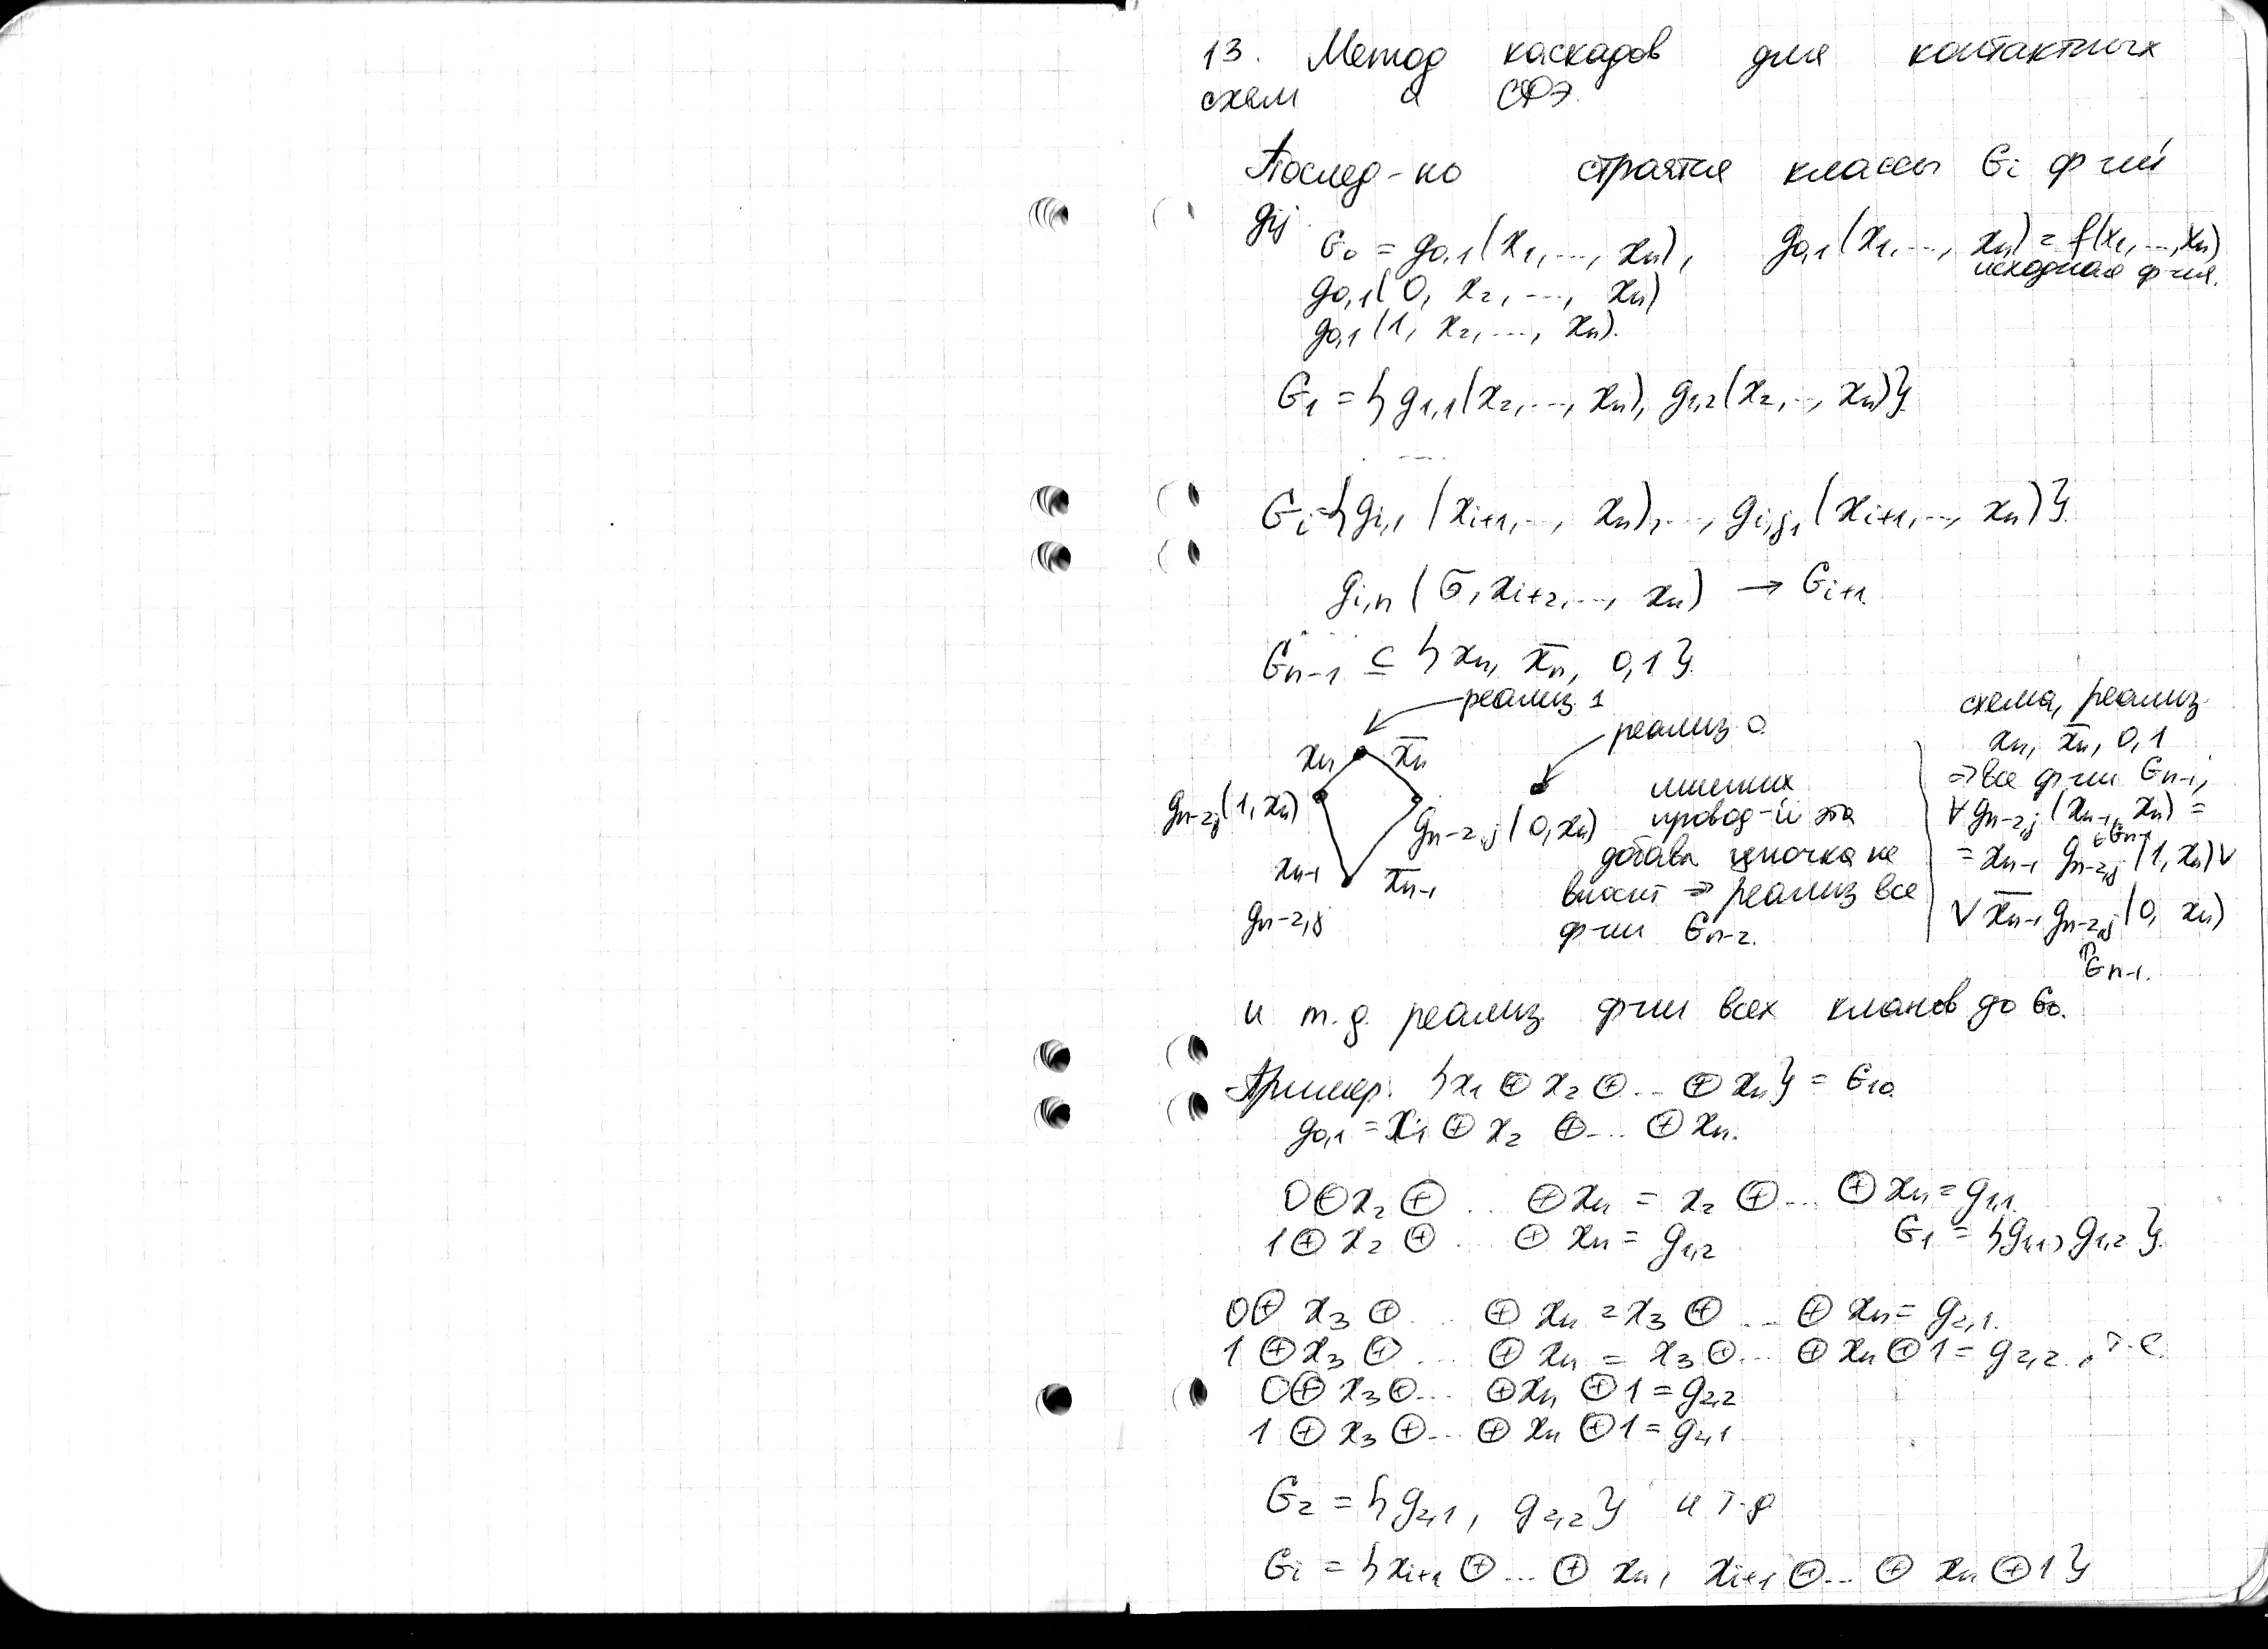 13. Метод каскадов для контактных
схем и СФЭ.
Послед-но строятся классы Gi ф-ций
gij.
G₀ = g₀,₁(x₁,..., xₙ), g₀,₁(x₁,..., xₙ) = f(x₁,...,xₙ)
исходная ф-ция.
g₀,₁(0, x₂,..., xₙ)
g₀,₁(1, x₂,..., xₙ).
G₁ = {g₁,₁(x₂,..., xₙ), g₁,₂(x₂,.., xₙ)}
.....
Gᵢ = {gᵢ,₁(xᵢ₊₁,.., xₙ),..., gᵢ,j₁(xᵢ₊₁,.., xₙ)}
gᵢ,n(σ, xᵢ₊₂,..., xₙ) → Gᵢ₊₁.
Gₙ₋₁ ⊆ {xₙ, x̄ₙ, 0,1}
реализ. 1
реализ. 0
xₙ x̄ₙ
gₙ₋₂,j(1, xₙ)
gₙ₋₂,j(0, xₙ)
xₙ₋₁ x̄ₙ₋₁
gₙ₋₂,j
лишних
провод-й эта
добавл цепочка не
вносит ⇒ реализ все
ф-ции Gₙ₋₂.
схема, реализ.
xₙ, x̄ₙ, 0,1
⇒ все ф-ции Gₙ₋₁,
∀ gₙ₋₂,j(xₙ₋₁, xₙ) =
= xₙ₋₁ gₙ₋₂,j(1, xₙ) ∨
∈Gₙ₋₁
∨ x̄ₙ₋₁ gₙ₋₂,j(0, xₙ)
↑
Gₙ₋₁.
и т.д. реализ. ф-ции всех кланов до G₀.
Пример. {x₁ ⊕ x₂ ⊕ ... ⊕ xₙ} = G₁₀.
g₀,₁ = x₁ ⊕ x₂ ⊕ ... ⊕ xₙ.
0 ⊕ x₂ ⊕ ... ⊕ xₙ = x₂ ⊕ ... ⊕ xₙ = g₁,₁.
1 ⊕ x₂ ⊕ ... ⊕ xₙ = g₁,₂ G₁ = {g₁,₁, g₁,₂}.
0 ⊕ x₃ ⊕ ... ⊕ xₙ = x₃ ⊕ ... ⊕ xₙ = g₂,₁.
1 ⊕ x₃ ⊕ ... ⊕ xₙ = x₃ ⊕ ... ⊕ xₙ ⊕ 1 = g₂,₂., т.е.
0 ⊕ x₃ ⊕ ... ⊕ xₙ ⊕ 1 = g₂,₂
1 ⊕ x₃ ⊕ ... ⊕ xₙ ⊕ 1 = g₂,₁
G₂ = {g₂,₁, g₂,₂} и т.д
Gᵢ = {xᵢ₊₁ ⊕ ... ⊕ xₙ, xᵢ₊₁ ⊕ ... ⊕ xₙ ⊕ 1}